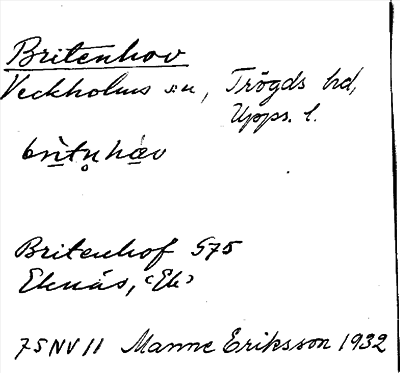 Britenhov
Veckholms sn, Trögds hd,
Upps. l.
bri̱tn̥hæ̱v
Britenhof S75
Eknäs, "Ek"
75NV11 Manne Eriksson 1932